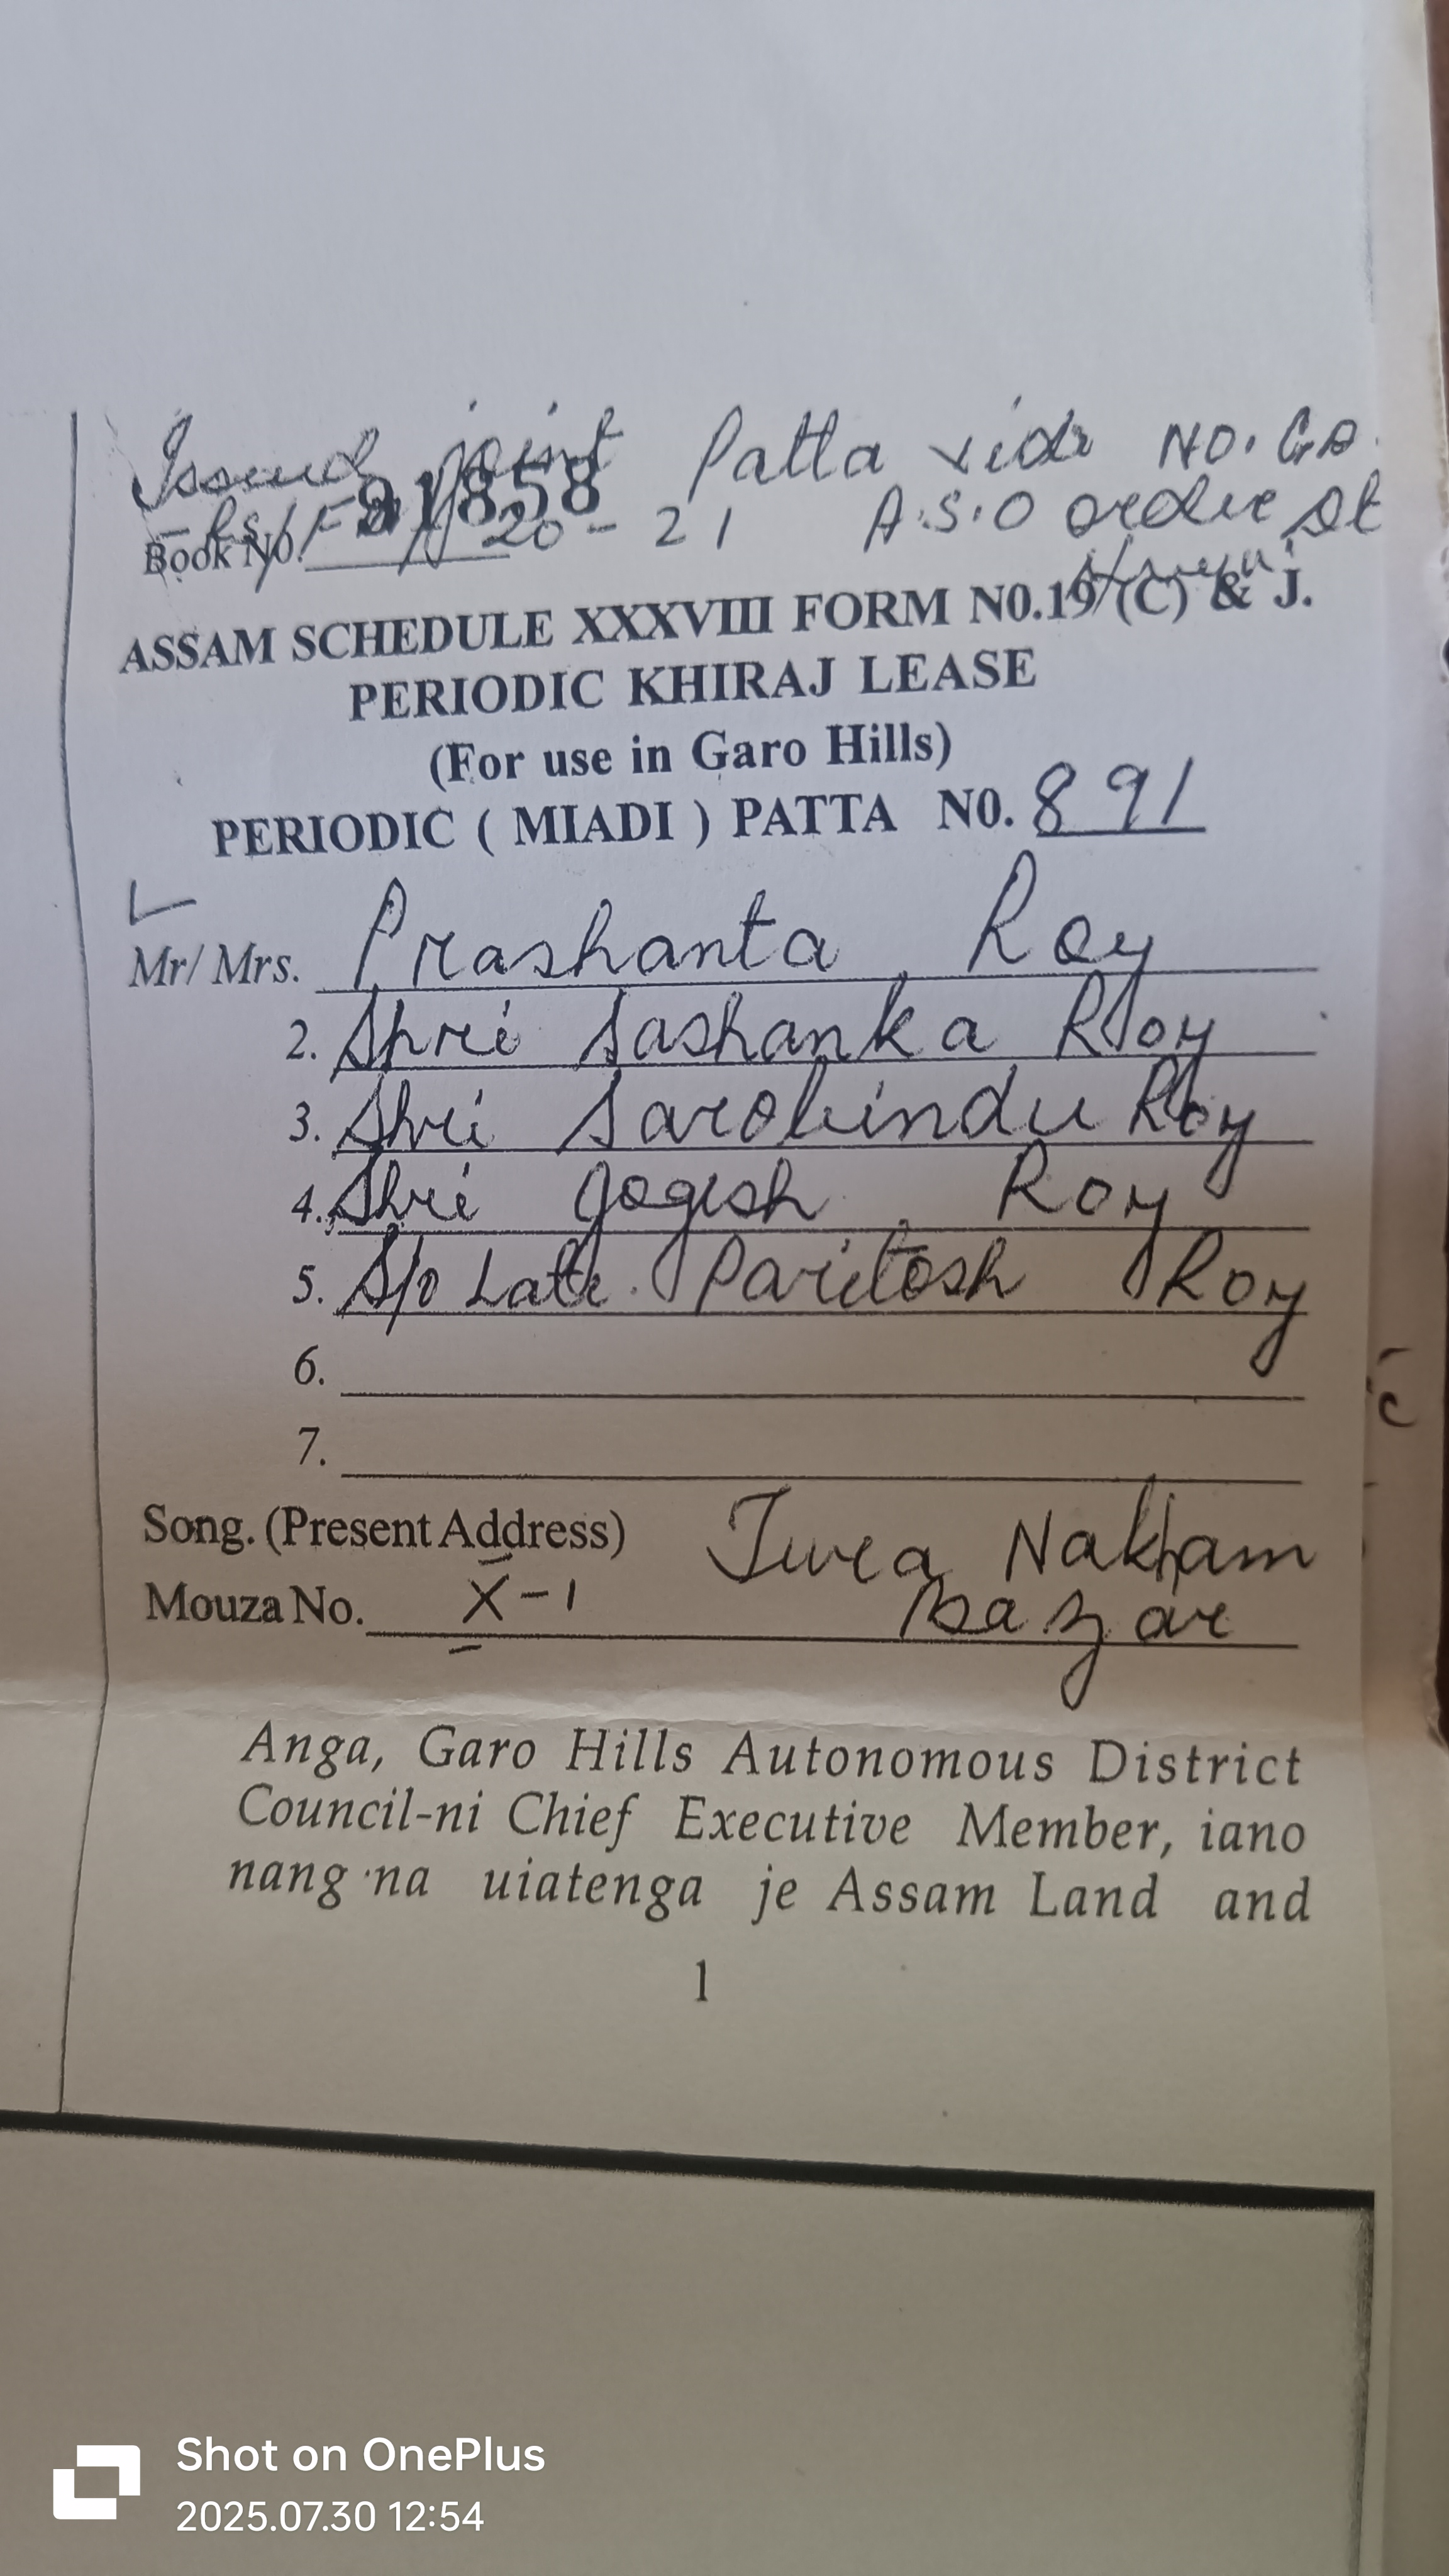 Issued joint Patta vide NO. GA.
91858
20-21 A.S.O order dt
Book No.
ASSAM SCHEDULE XXXVIII FORM N0.19 (C) & J.
PERIODIC KHIRAJ LEASE
(For use in Garo Hills)
PERIODIC ( MIADI ) PATTA N0. 891
Mr/ Mrs. Prashanta Roy
2. Shri Sashanka Roy
3. Shri Sarobindu Roy
4. Shri Jogesh Roy
5. S/o Late. Paritosh Roy
6.
7.
Song. (Present Address) Tura Nakham
Mouza No. X-1 Bazar
Anga, Garo Hills Autonomous District
Council-ni Chief Executive Member, iano
nang·na uiatenga je Assam Land and
1
Shot on OnePlus
2025.07.30 12:54